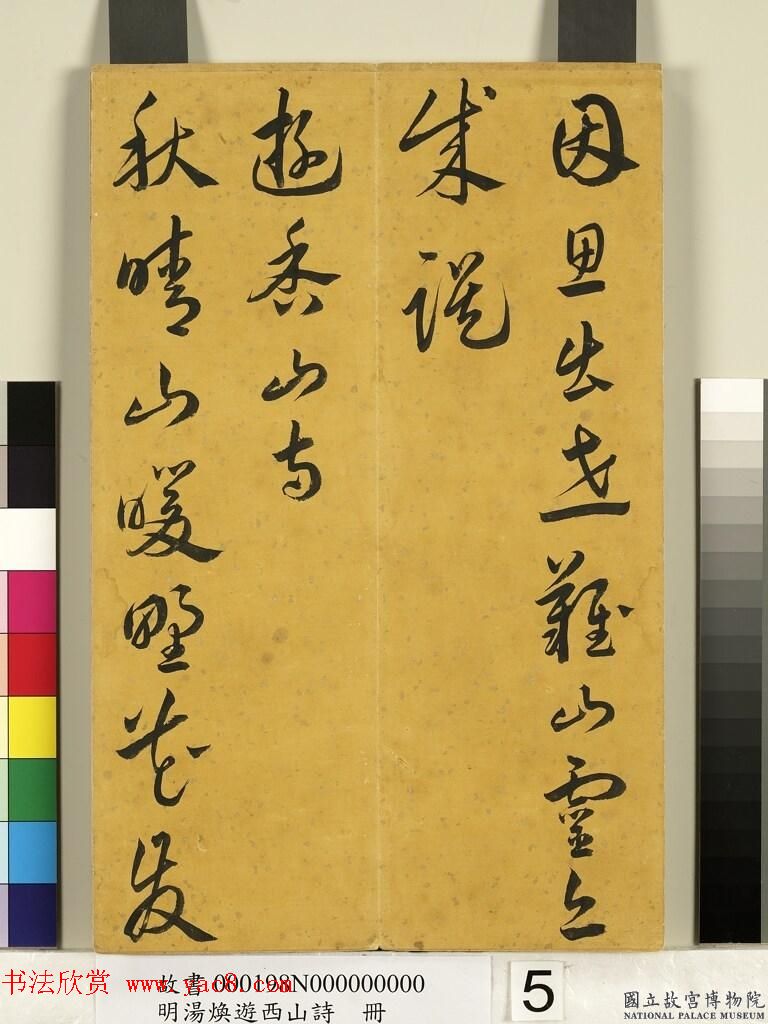 因思出世難山靈
遊香山寺
秋晴山暖野花發
书法欣赏 www.yac8.com
故書 000198N000000000
明湯煥遊西山詩 冊
5
國立故宮博物院
NATIONAL PALACE MUSEUM